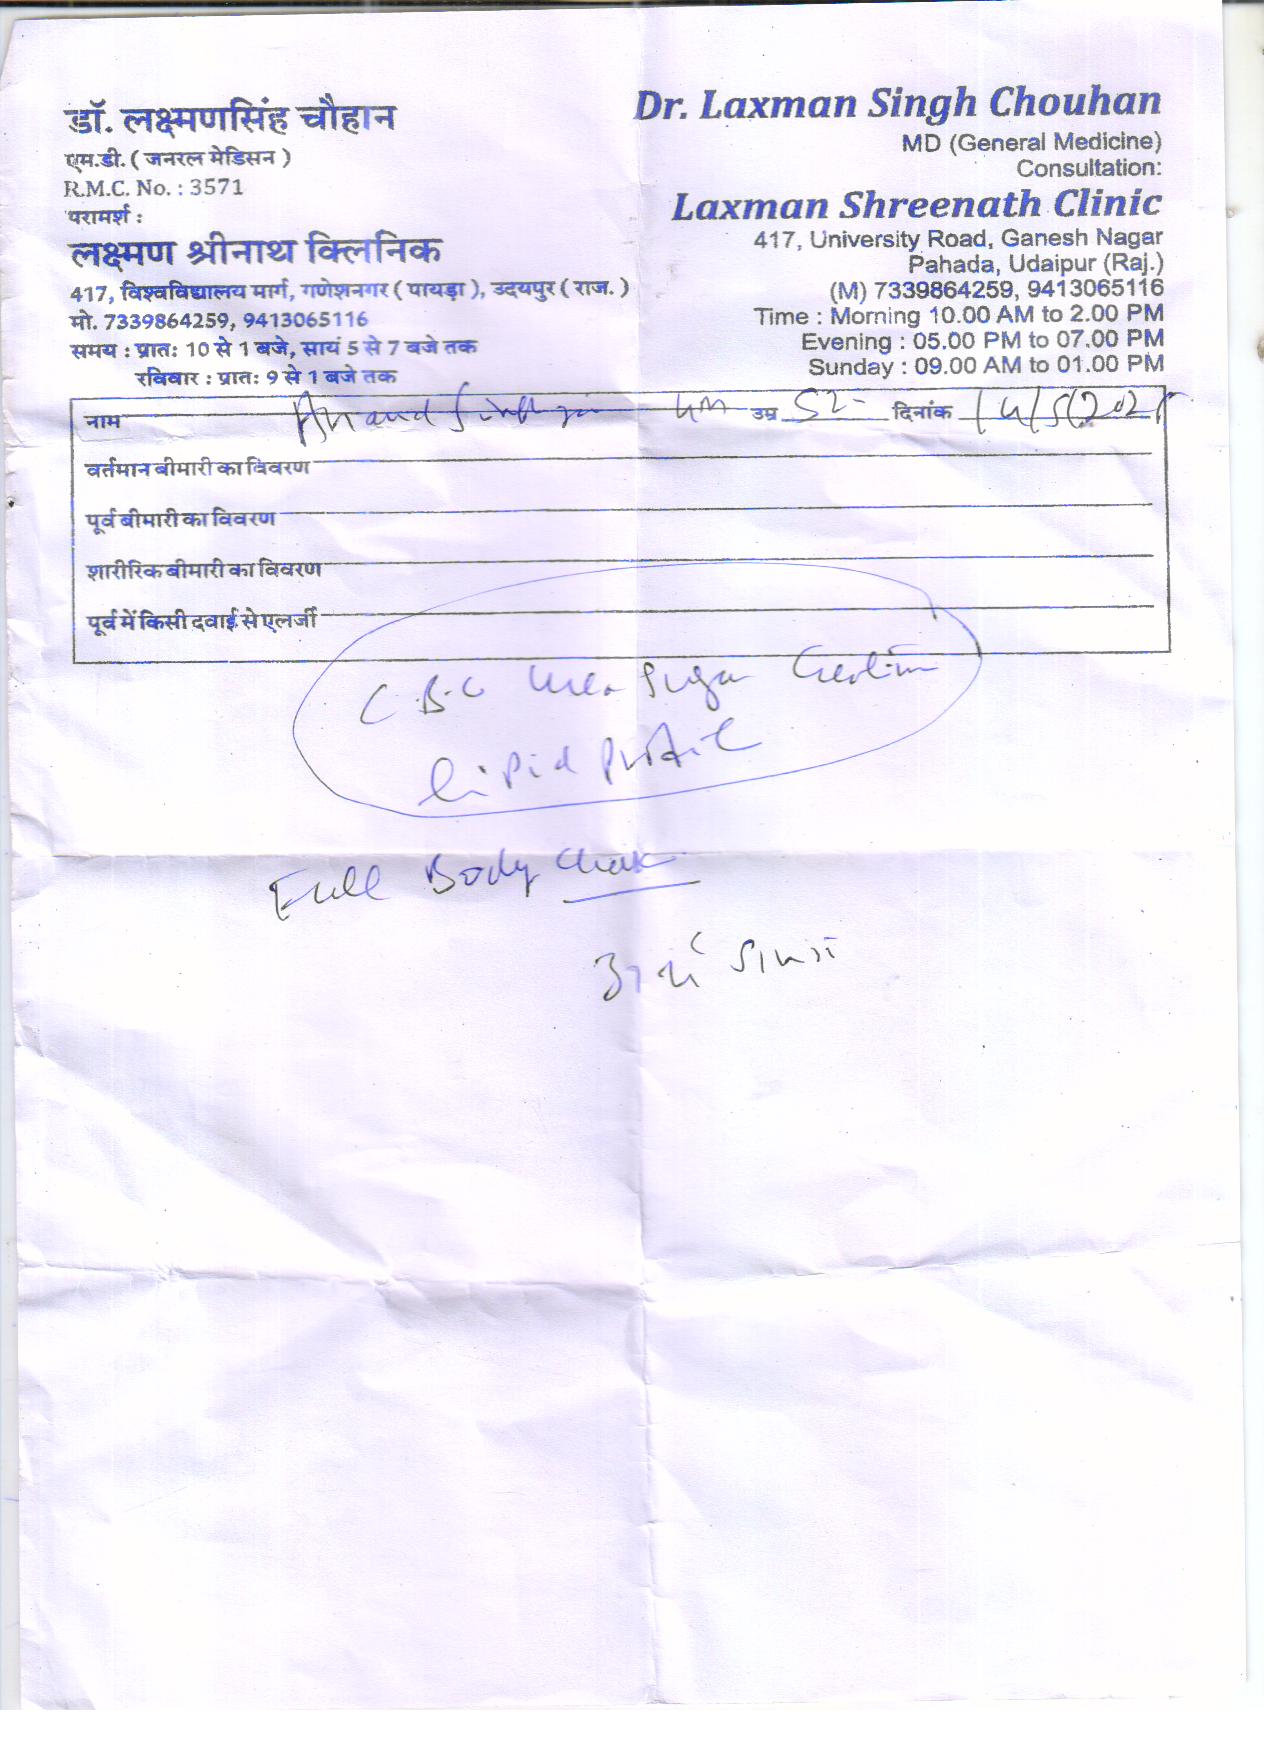 डॉ. लक्ष्मणसिंह चौहान
एम.डी. ( जनरल मेडिसन )
R.M.C. No. : 3571
परामर्श :
लक्ष्मण श्रीनाथ क्लिनिक
417, विश्वविद्यालय मार्ग, गणेशनगर ( पायड़ा ), उदयपुर ( राज. )
मो. 7339864259, 9413065116
समय : प्रातः 10 से 1 बजे, सायं 5 से 7 बजे तक
रविवार : प्रातः 9 से 1 बजे तक
Dr. Laxman Singh Chouhan
MD (General Medicine)
Consultation:
Laxman Shreenath Clinic
417, University Road, Ganesh Nagar
Pahada, Udaipur (Raj.)
(M) 7339864259, 9413065116
Time : Morning 10.00 AM to 2.00 PM
Evening : 05.00 PM to 07.00 PM
Sunday : 09.00 AM to 01.00 PM
नाम Anand उम्र 52 दिनांक 14/5/202
वर्तमान बीमारी का विवरण
पूर्व बीमारी का विवरण
शारीरिक बीमारी का विवरण
पूर्व में किसी दवाई से एलर्जी
CBC Urea Sugar
Lipid
Full Body